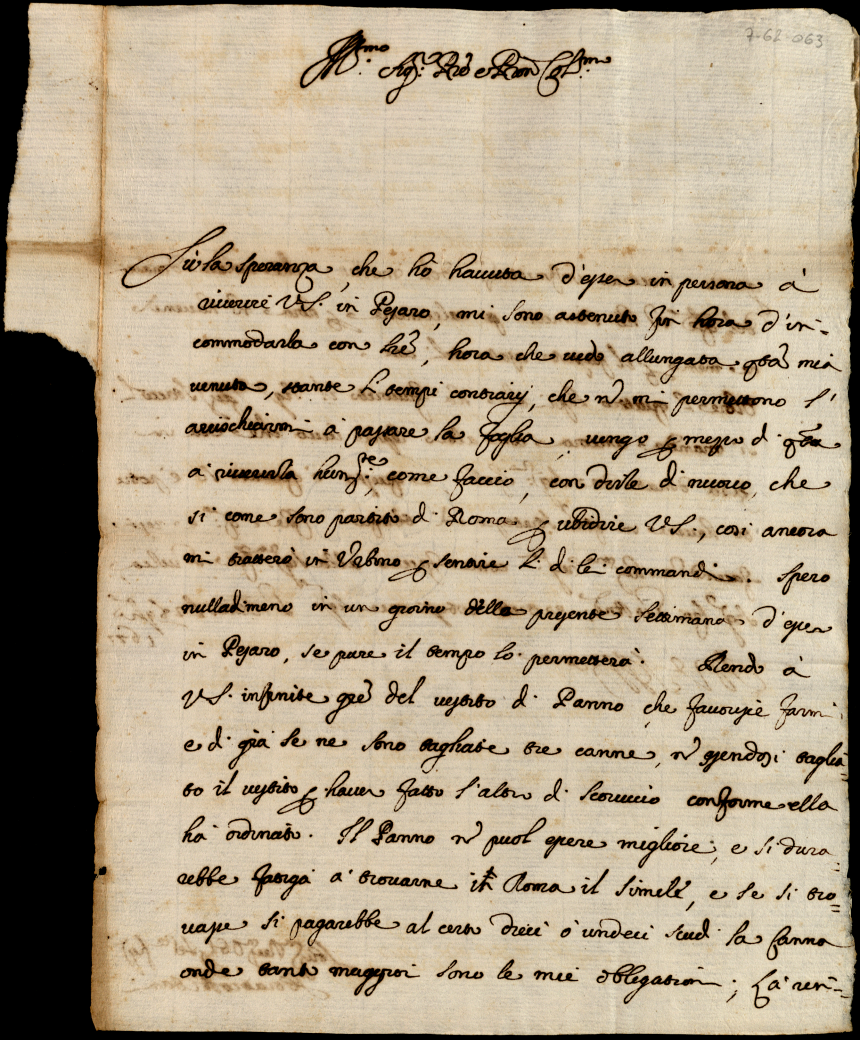 7-62-063
Ill.mo Sig.r Pró e Pron Col.mo
Fù la speranza, che hò hauuta d'esser in persona à
riuerire V.S. in Pesaro, mi sono astenuto fin hora d'in-
commodarla con lré, hora che uedo allungata qsta mia
uenuta, stante li tempi contrarij, che nō mi permettono l'
arrischiarmi à passare la foglia, uengo p mezo di qsta
à riuerirla hum.te, come faccio, con dirle di nuouo, che
si come sono partito di Roma p ubidire V.S., così ancora
mi tratterò in Urbino p sentire li di lei commandi. Spero
nulladimeno in un giorno della presente settimana d'esser
in Pesaro, se pure il tempo lo permetterà. Rendo à
V.S. infinite gré del uestito di Panno, che fauorisce farmi,
e di già se ne sono tagliate tre canne, nō essendosi taglia-
to il uestito p hauer fatto l'altro di scoruccio conforme ella
hà ordinato. Il Panno nō puol essere migliore, e si dura-
rebbe fatiga à trouarne in Roma il simile, e se si tro-
uasse si pagarebbe al certo dieci ò undeci scudi la Canna
onde tanto maggiori sono le mie obligationi; La ren-